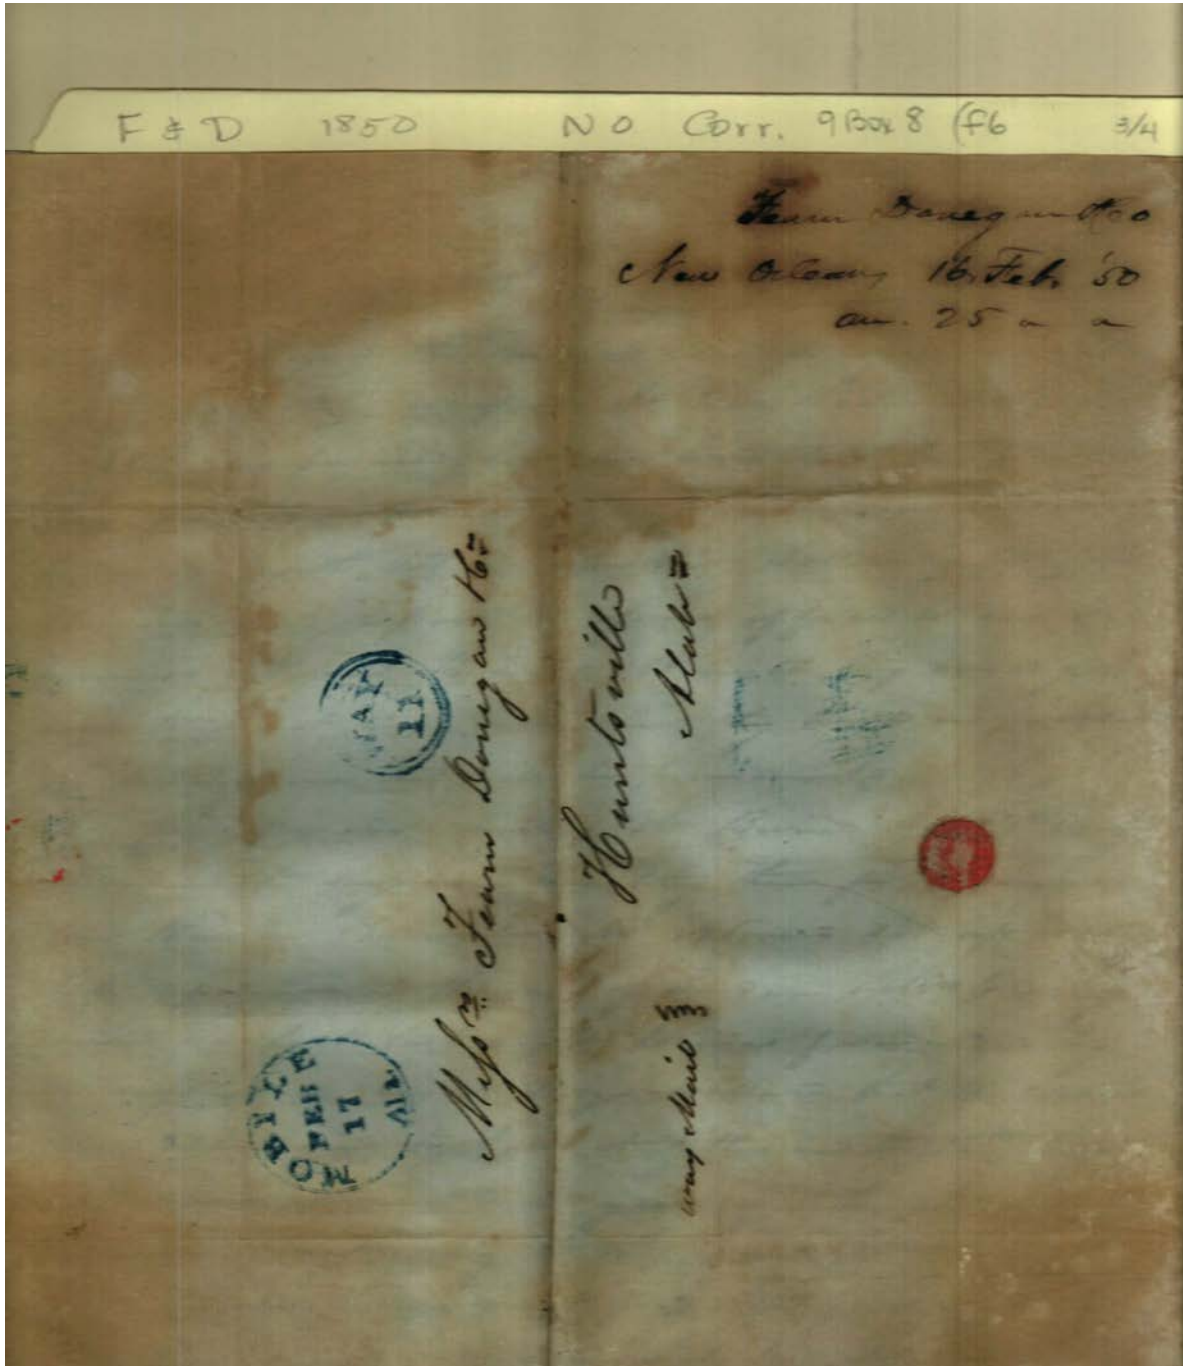 F & D 1850 NO Corr. 9 Box 8 (f6 3/4
Fearn Donegan & Co
New Orleans 16. Feb. '50
an. 25
WAY
11
Messrs Fearn Donegan & Co
Huntsville
Alaba
way Mail
MOBILE Ala.
FEB
17